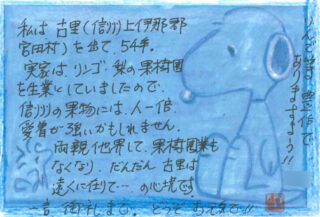 私は 古里(信州上伊那郡
宮田村)を出て、54年。
実家は、リンゴ・梨の果樹園
を生業としていましたので、
信州の果物には、人一倍、
愛着が強いかもしれません。
両親他界して、果樹園業も
なくなり、だんだん古里は
遠くに在りて…の心境です。
一言御礼まで。